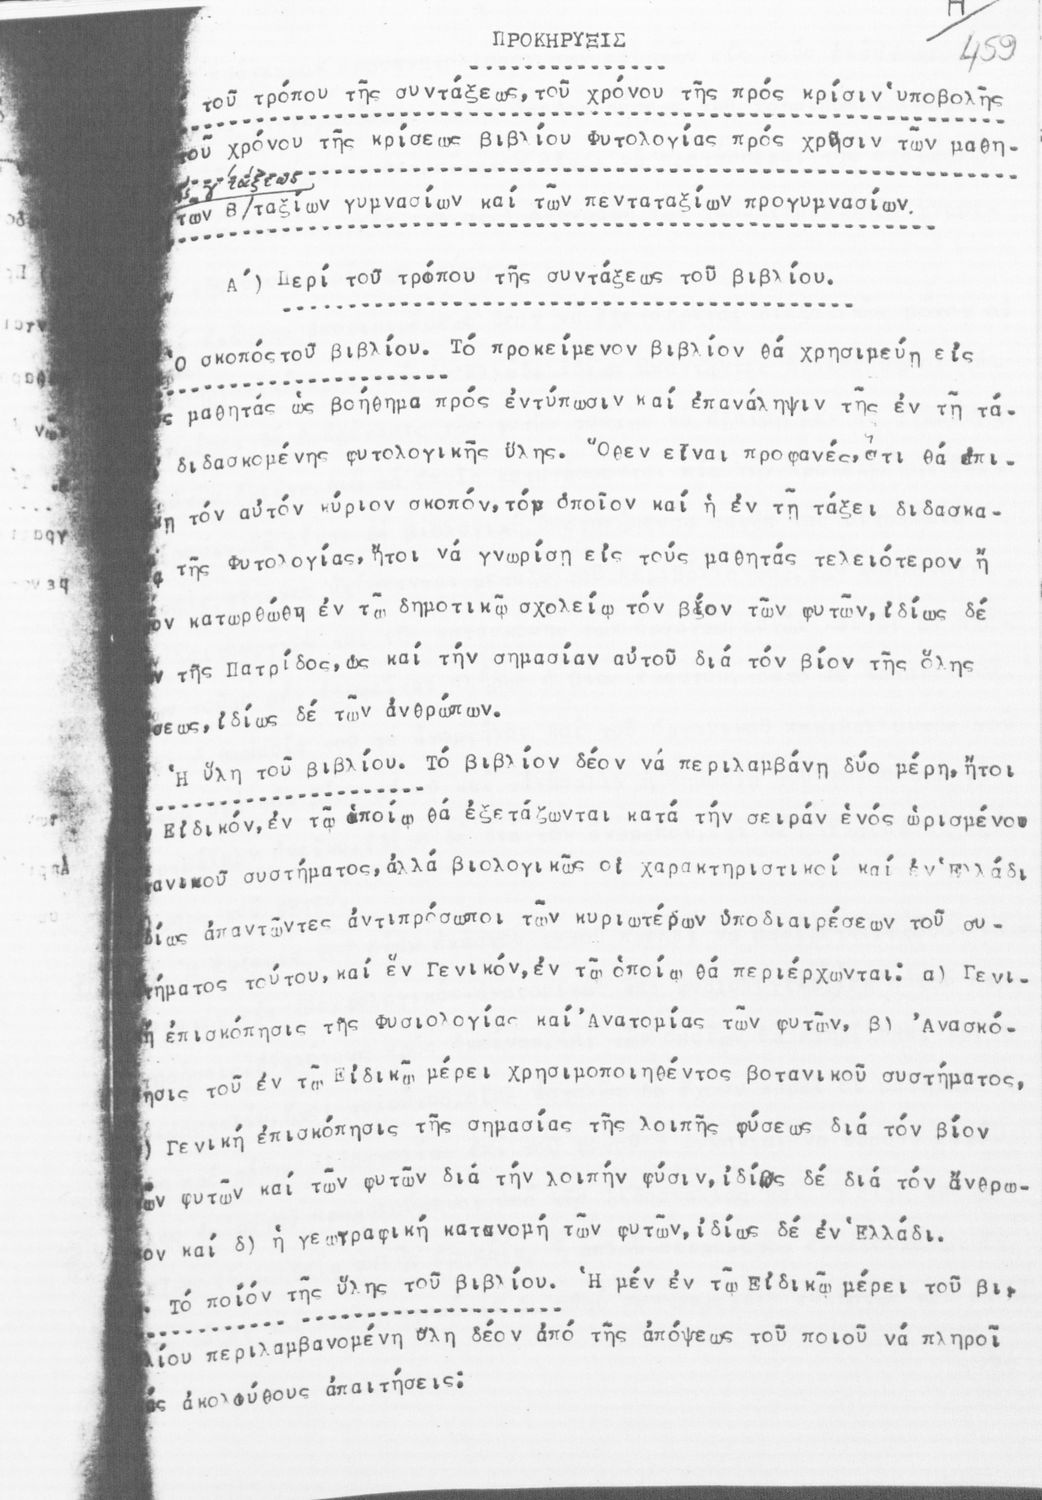 Η
459
ΠΡΟΚΗΡΥΞΙΣ
τοῦ τρόπου τῆς συντάξεως, τοῦ χρόνου τῆς πρός κρίσιν ὑποβολῆς
τοῦ χρόνου τῆς κρίσεως βιβλίου Φυτολογίας πρός χρῆσιν τῶν μαθη-
γ' τάξεως
των 8/ταξίων γυμνασίων καί τῶν πενταταξίων προγυμνασίων.
Α΄) Περί τοῦ τρόπου τῆς συντάξεως τοῦ βιβλίου.
Ὁ σκοπός τοῦ βιβλίου. Τό προκείμενον βιβλίον θά χρησιμεύῃ εἰς
ς μαθητάς ὡς βοήθημα πρός ἐντύπωσιν καί ἐπανάληψιν τῆς ἐν τῇ τά-
διδασκομένης φυτολογικῆς ὕλης. Ὅθεν εἶναι προφανές, ὅτι θά ἐπι-
ῃ τόν αὐτόν κύριον σκοπόν, τόν ὁποῖον καί ἡ ἐν τῇ τάξει διδασκα-
α τῆς Φυτολογίας, ἤτοι νά γνωρίσῃ εἰς τούς μαθητάς τελειότερον ἤ
ον κατωρθώθη ἐν τῷ δημοτικῷ σχολείῳ τόν βίον τῶν φυτῶν, ἰδίως δέ
ν τῆς Πατρίδος, ὡς καί τήν σημασίαν αὐτοῦ διά τόν βίον τῆς ὅλης
σεως, ἰδίως δέ τῶν ἀνθρώπων.
Ἡ ὕλη τοῦ βιβλίου. Τό βιβλίον δέον νά περιλαμβάνῃ δύο μέρη, ἤτοι
Εἰδικόν, ἐν τῷ ὁποίῳ θά ἐξετάζωνται κατά τήν σειράν ἑνός ὡρισμένου
τανικοῦ συστήματος, ἀλλά βιολογικῶς οἱ χαρακτηριστικοί καί ἐν Ἑλλάδι
δίως ἀπαντῶντες ἀντιπρόσωποι τῶν κυριωτέρων ὑποδιαιρέσεων τοῦ συ-
τήματος τούτου, καί ἕν Γενικόν, ἐν τῷ ὁποίῳ θά περιέρχωνται: α) Γενι-
ή ἐπισκόπησις τῆς Φυσιολογίας καί Ἀνατομίας τῶν φυτῶν, β) Ἀνασκό-
ησις τοῦ ἐν τῷ Εἰδικῷ μέρει χρησιμοποιηθέντος βοτανικοῦ συστήματος,
) Γενική ἐπισκόπησις τῆς σημασίας τῆς λοιπῆς φύσεως διά τόν βίον
ῶν φυτῶν καί τῶν φυτῶν διά τήν λοιπήν φύσιν, ἰδίως δέ διά τόν ἄνθρω-
ον καί δ) ἡ γεωγραφική κατανομή τῶν φυτῶν, ἰδίως δέ ἐν Ἑλλάδι.
. Τό ποιόν τῆς ὕλης τοῦ βιβλίου. Ἡ μέν ἐν τῷ Εἰδικῷ μέρει τοῦ βι-
λίου περιλαμβανομένη ὕλη δέον ἀπό τῆς ἀπόψεως τοῦ ποιοῦ νά πληροῖ
άς ἀκολούθους ἀπαιτήσεις: